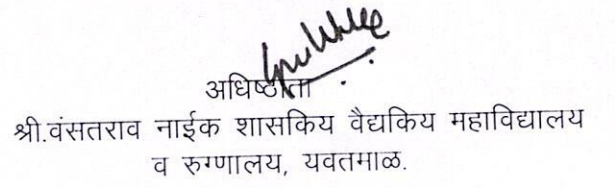 अधिष्ठाता
श्री.वंसतराव नाईक शासकिय वैद्यकिय महाविद्यालय
व रुग्णालय, यवतमाळ.